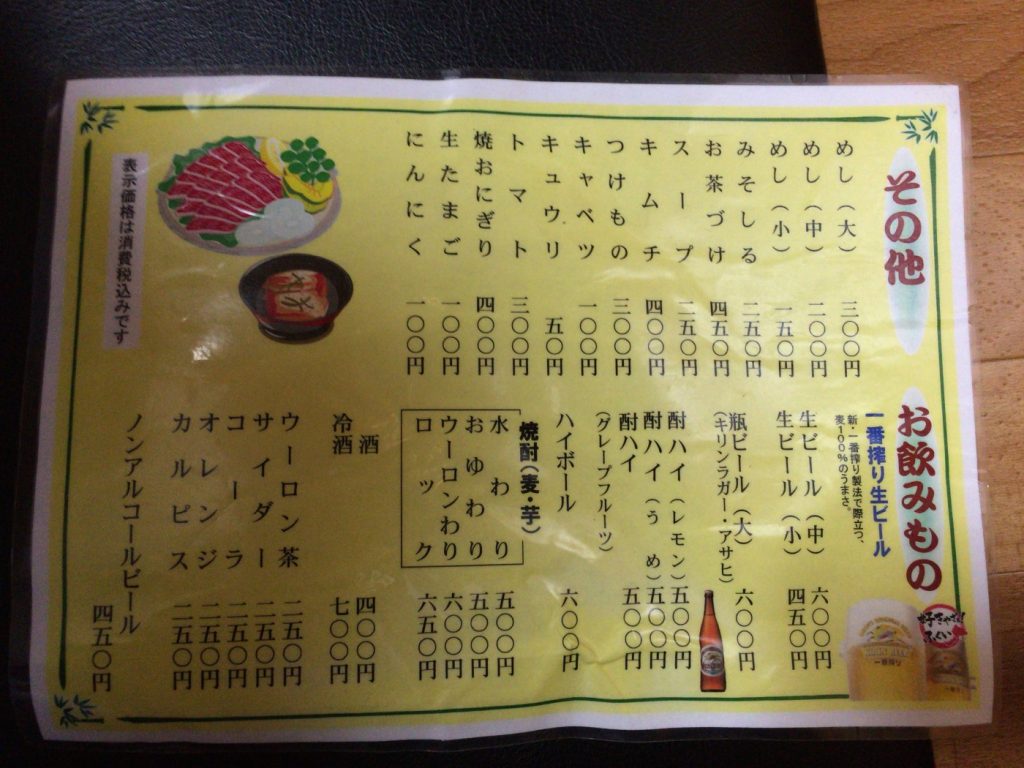 その他
めし（大） 三〇〇円
めし（中） 二〇〇円
めし（小） 一五〇円
みそしる 二五〇円
お茶づけ 四五〇円
スープ 二五〇円
キムチ 四〇〇円
つけもの 三〇〇円
キャベツ 一〇〇円
キュウリ 五〇円
トマト 三〇〇円
焼おにぎり 四〇〇円
生たまご 一〇〇円
にんにく 一〇〇円
表示価格は消費税込みです
お飲みもの
一番搾り生ビール
新・一番搾り製法で際立つ、
麦100%のうまさ。
生ビール（中） 六〇〇円
生ビール（小） 四五〇円
瓶ビール（大） 六〇〇円
（キリンラガー・アサヒ）
酎ハイ（レモン） 五〇〇円
酎ハイ（うめ） 五〇〇円
酎ハイ 五〇〇円
（グレープフルーツ）
ハイボール 六〇〇円
焼酎（麦・芋）
水わり 五〇〇円
おゆわり 五〇〇円
ウーロンわり 六〇〇円
ロック 六五〇円
酒 四〇〇円
冷酒 七〇〇円
ウーロン茶 二五〇円
サイダー 二五〇円
コーラ 二五〇円
オレンジ 二五〇円
カルピス 二五〇円
ノンアルコールビール 四五〇円
一番搾り